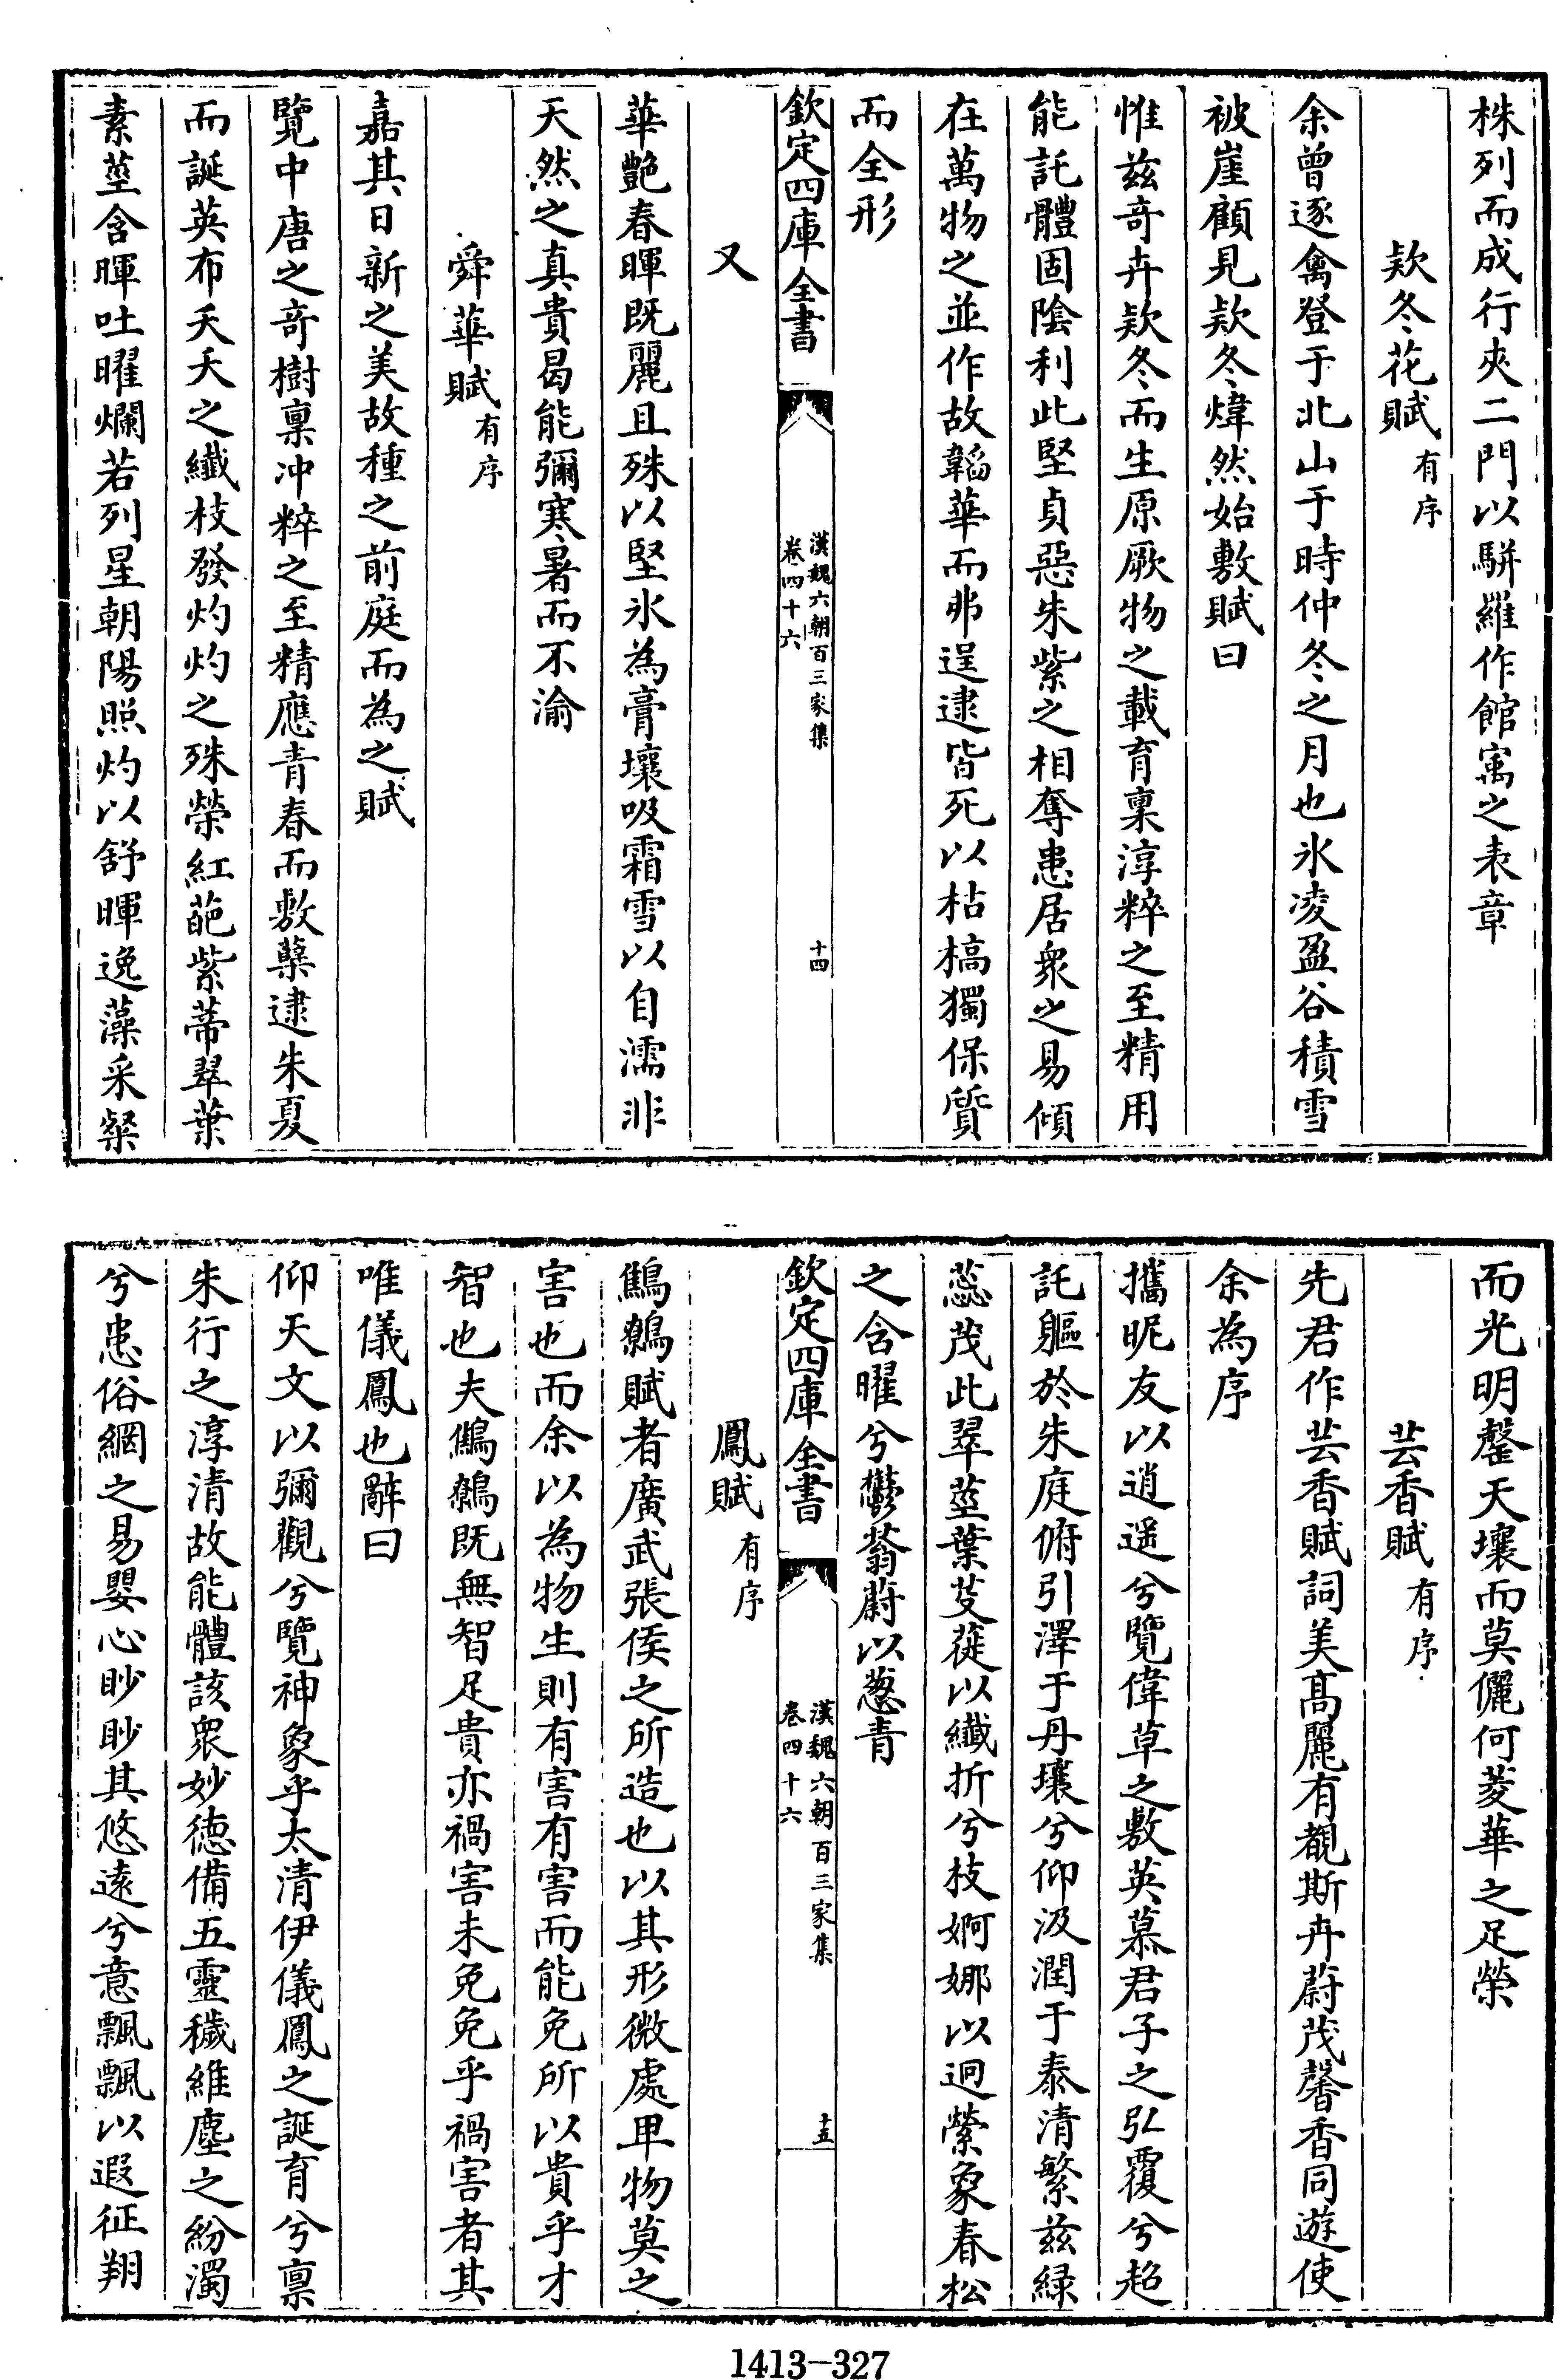 株列而成行夾二門以駢羅作館寓之表章
欵冬花賦有序
余曾逐禽登于北山于時仲冬之月也氷凌盈谷積雪
被崖顧見欵冬煒然始敷賦曰
惟兹奇卉欵冬而生原厥物之載育稟淳粹之至精用
能託體固陰利此堅貞惡朱紫之相奪患居衆之易傾
在萬物之並作故韜華而弗逞逮皆死以枯槁獨保質
而全形
欽定四庫全書
漢魏六朝百三家集
卷四十六
十四
又
華艷春暉既麗且殊以堅氷為膏壤吸霜雪以自濡非
天然之真貴曷能彌寒暑而不渝
舜華賦有序
嘉其日新之美故種之前庭而為之賦
覽中唐之奇樹稟冲粹之至精應青春而敷蘖逮朱夏
而誕英布夭夭之纎枝發灼灼之殊榮紅葩紫蔕翠葉
素莖含暉吐曜爛若列星朝陽照灼以舒暉逸藻采粲
而光明罄天壤而莫儷何菱華之足榮
芸香賦有序
先君作芸香賦詞美髙麗有覩斯卉蔚茂馨香同遊使
余為序
攜昵友以逍遥兮覽偉草之敷英慕君子之弘覆兮超
託軀於朱庭俯引澤于丹壤兮仰汲潤于泰清繁兹緑
蕊茂此翠莖葉芟蓰以纎折兮枝婀娜以迥縈象春松
之含曜兮鬱蓊蔚以葱青
欽定四庫全書
漢魏六朝百三家集
卷四十六
十五
鳳賦有序
鷦鷯賦者廣武張侯之所造也以其形微處卑物莫之
害也而余以為物生則有害有害而能免所以貴乎才
智也夫鷦鷯既無智足貴亦禍害未免免乎禍害者其
唯儀鳳也辭曰
仰天文以彌觀兮覽神象乎太清伊儀鳳之誕育兮禀
朱行之淳清故能體該衆妙德備五靈穢維塵之紛濁
兮患俗網之易嬰心眇眇其悠遠兮意飄飄以遐征翔
1413-327